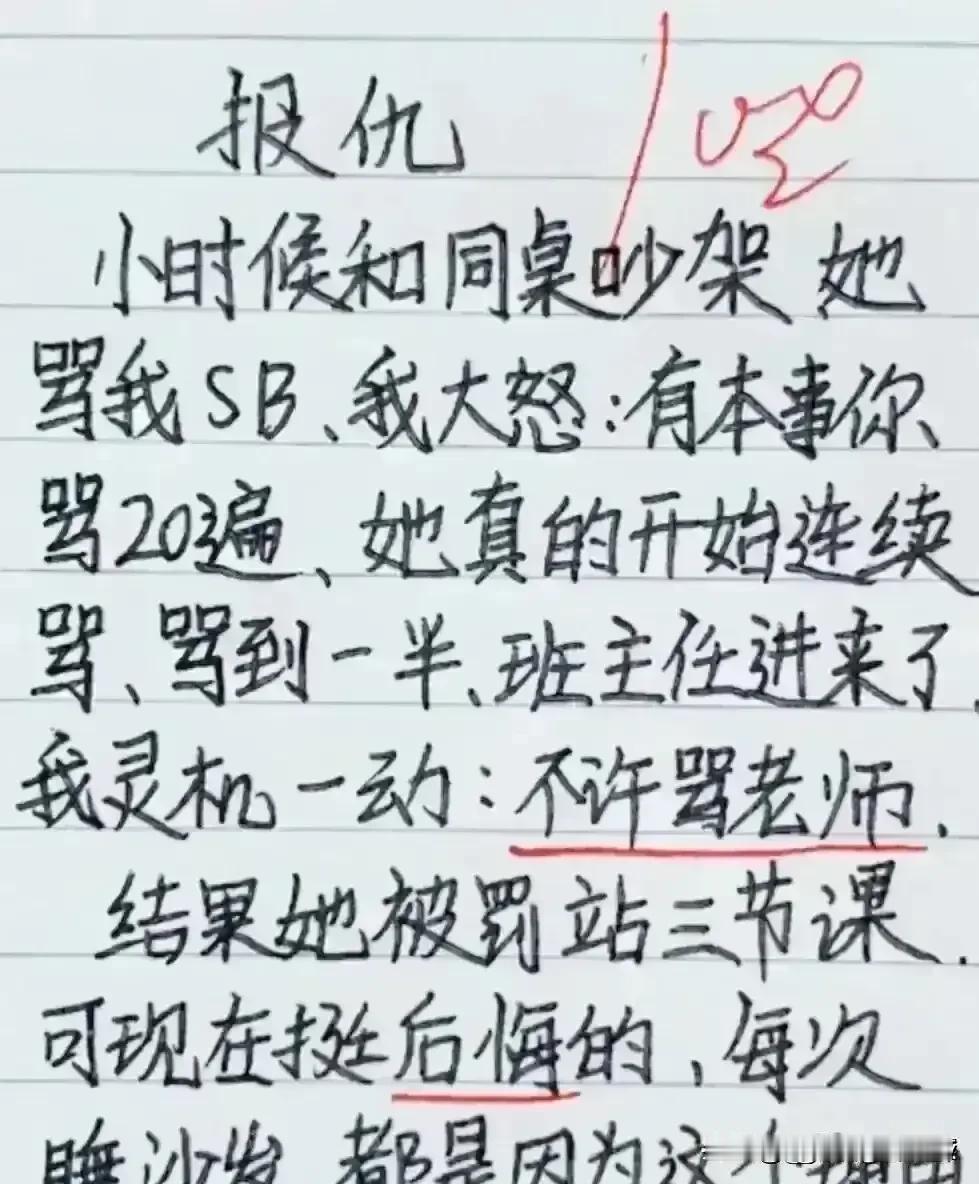 报仇
小时候和同桌吵架 她
骂我SB、我大怒:有本事你、
骂20遍、她真的开始连续
骂、骂到一半、班主任进来了.
我灵机一动:不许骂老师.
结果她被罚站三节课.
可现在挺后悔的、每次
睡沙发 都是因为这个